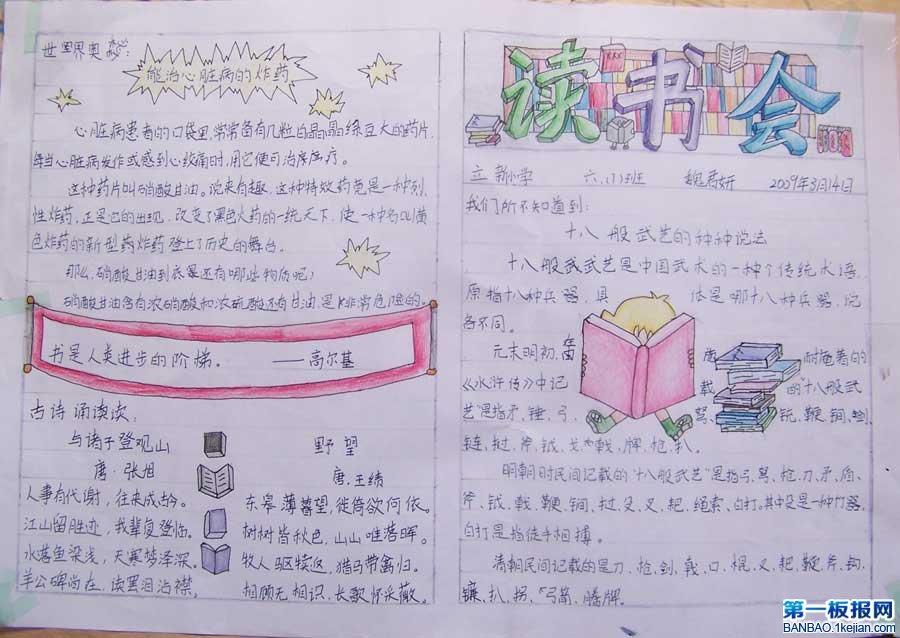 世界奥秘:
能治心脏病的炸药
心脏病患者的口袋里,常常备有几粒白晶晶绿豆大的药片,
每当心脏病发作或感到心绞痛时,用它便可治疗
这种药片叫硝酸甘油。说来有趣,这种特效药竟是一种烈
性炸药,正是它的出现,改变了黑色火药的一统天下,使一种名叫黄
色炸药的新型炸药登上了历史的舞台。
那么,硝酸甘油到底还有哪些物质呢?
硝酸甘油含有浓硝酸和浓硫酸还有甘油,是非常危险的。
书是人类进步的阶梯。 ——高尔基
古诗诵读:
与诸子登观山
唐·张旭
人事有代谢,往来成古今。
江山留胜迹,我辈复登临。
水落鱼梁浅,天寒梦泽深。
羊公碑尚在,读罢泪沾襟。
野望
唐,王绩
东皋薄暮望,徙倚欲何依。
树树皆秋色,山山唯落晖。
牧人驱犊返,猎马带禽归。
相顾无相识,长歌怀采薇。
读书会
立新小学 六、(1)班 2009年3月14日
我们所不知道到:
十八般武艺的种种说法
十八般武武艺是中国武术的一种个传统术语,
原指十八种兵器,具体是哪十八种兵器,说
各不同。
元末明初,唐耐庵著的
《水浒传》中记载的"十八般武
艺"是指矛、锤、弓、弩、铳、鞭、锏、剑、
链、挝、斧、钺、戈、戟、牌、枪、扒。
明朝时民间记载的"十八般武艺"是指弓、弩、枪、刀、矛、盾、
斧、钺、戟、鞭、锏、挝、殳、叉、耙、绳索、白打,其中殳是一种竹器,
白打是指徒手相搏。
清朝民间记载的是刀、枪、剑、戟、口、棍、叉、耙、鞭、斧、钩、
镰、扒、拐、弓箭、藤牌。
第一板报网
BANBAO.1kejian.com